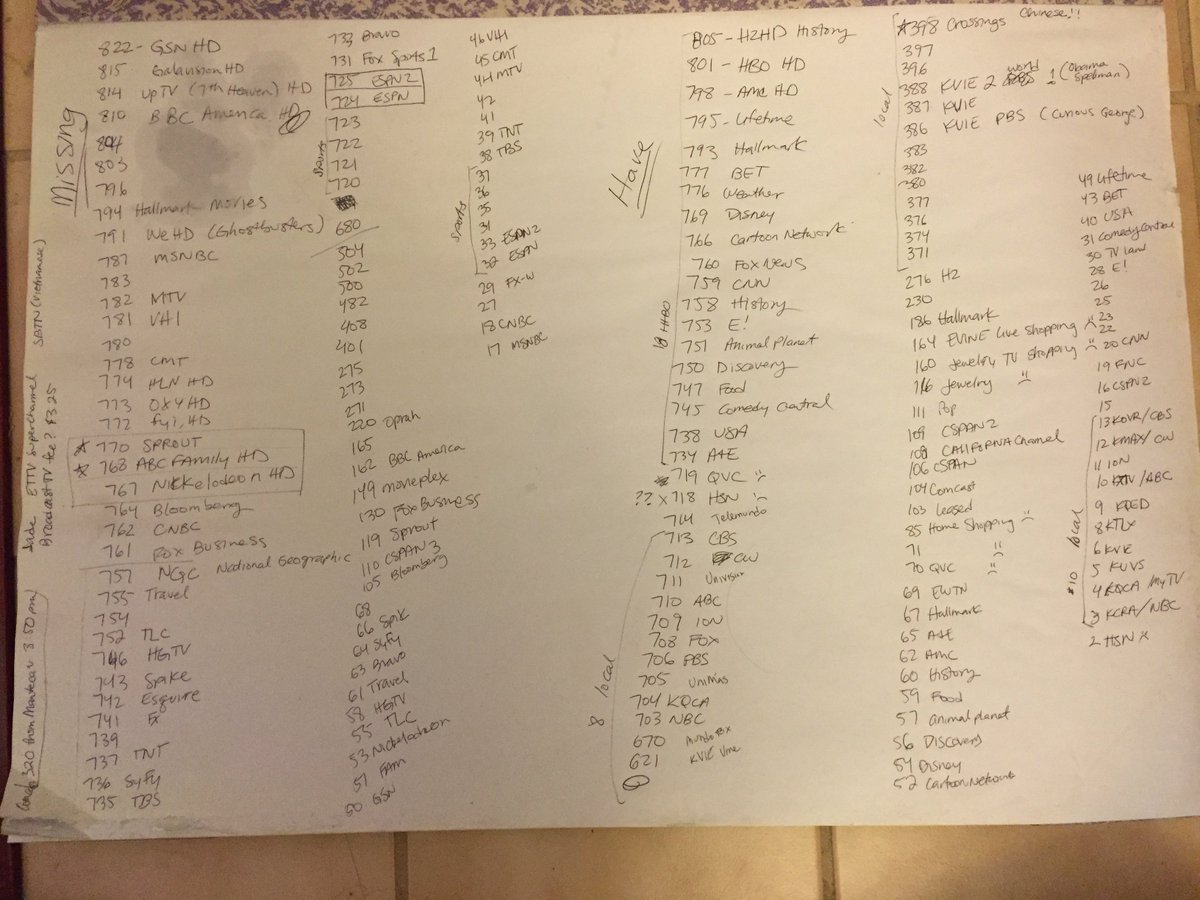 Missing
822 - GSN HD
815 Galavision HD
814 UpTV (7th Heaven) HD
810 BBC America HD
804
803
796
794 Hallmark Movies
791 WeHD (Ghostbusters)
787 MSNBC
783
782 MTV
781 VH1
780
778 CMT
774 HLN HD
773 OXY HD
772 fyi, HD
* 770 SPROUT
* 768 ABC FAMILY HD
767 Nickelodeon HD
764 Bloomberg
762 CNBC
761 Fox Business
757 NGC National Geographic
755 Travel
754
752 TLC
746 HGTV
743 Spike
742 Esquire
741 FX
739
737 TNT
736 SyFy
735 TBS
Jade ETTV Superchannel SBTN (Vietnamese)
Broadcast TV fee? $3.25
320 from Manteca 3:50 pm)
733 Bravo
731 Fox Sports 1
725 ESPN2
724 ESPN
723
722
721
720
Sports
680
504
502
500
482
408
401
275
273
271
220 Oprah
165
162 BBC America
149 moneplex
130 Fox Business
119 Sprout
110 CSPAN 3
105 Bloomberg
68
66 Spik
64 SyFy
63 Bravo
61 Travel
58 HGTV
55 TLC
53 Nickelodeon
51 FAM
50 GSN
46 VH1
45 CMT
44 MTV
42
41
39 TNT
38 TBS
37
36
35
34
33 ESPN2
32 ESPN
Sports
29 FX-W
27
18 CNBC
17 MSNBC
Have
805 - H2HD History
801 - HBO HD
798 - AMC HD
795 - Lifetime
793 Hallmark
777 BET
776 Weather
769 Disney
766 Cartoon Network
760 Fox News
759 CNN
758 History
753 E!
751 Animal Planet
750 Discovery
747 Food
745 Comedy Central
738 USA
734 A+E
719 QVC
?? x 718 HSN
714 Telemundo
713 CBS
712 CW
711 Univision
710 ABC
709 ION
708 FOX
706 PBS
705 UniMas
704 KQCA
703 NBC
670
621 KVIE Vme
8 local
*398 Crossings Chinese!!
397
396
388 KVIE 2 world 1 (Obama Spellman)
387 KVIE
386 KVIE PBS (Curious George)
383
382
380
377
376
374
371
local
276 H2
230
186 Hallmark
164 EVINE Live Shopping
160 Jewelry TV Shopping
116 Jewelry "
111 Pop
109 CSPAN2
108 CALIFORNIA Channel
106 CSPAN
104 Comcast
103 Leased
85 Home Shopping
71 "
70 QVC "
69 EWTN
67 Hallmark
65 A+E
62 AMC
60 History
59 Food
57 animal planet
56 Discovery
54 Disney
52 Cartoon Network
49 Lifetime
43 BET
40 USA
31 Comedy Central
30 TV Land
28 E!
26
25
23
22
20 CNN
19 FNC
16 CSPAN2
15
13 KOVR/CBS
12 KMAX/CW
11 ION
10 KXTV/ABC
9 KQED
8 KTLX
6 KVIE
5 KUVS
4 KQCA/MyTV
3 KCRA/NBC
2 HSN x
$10 local